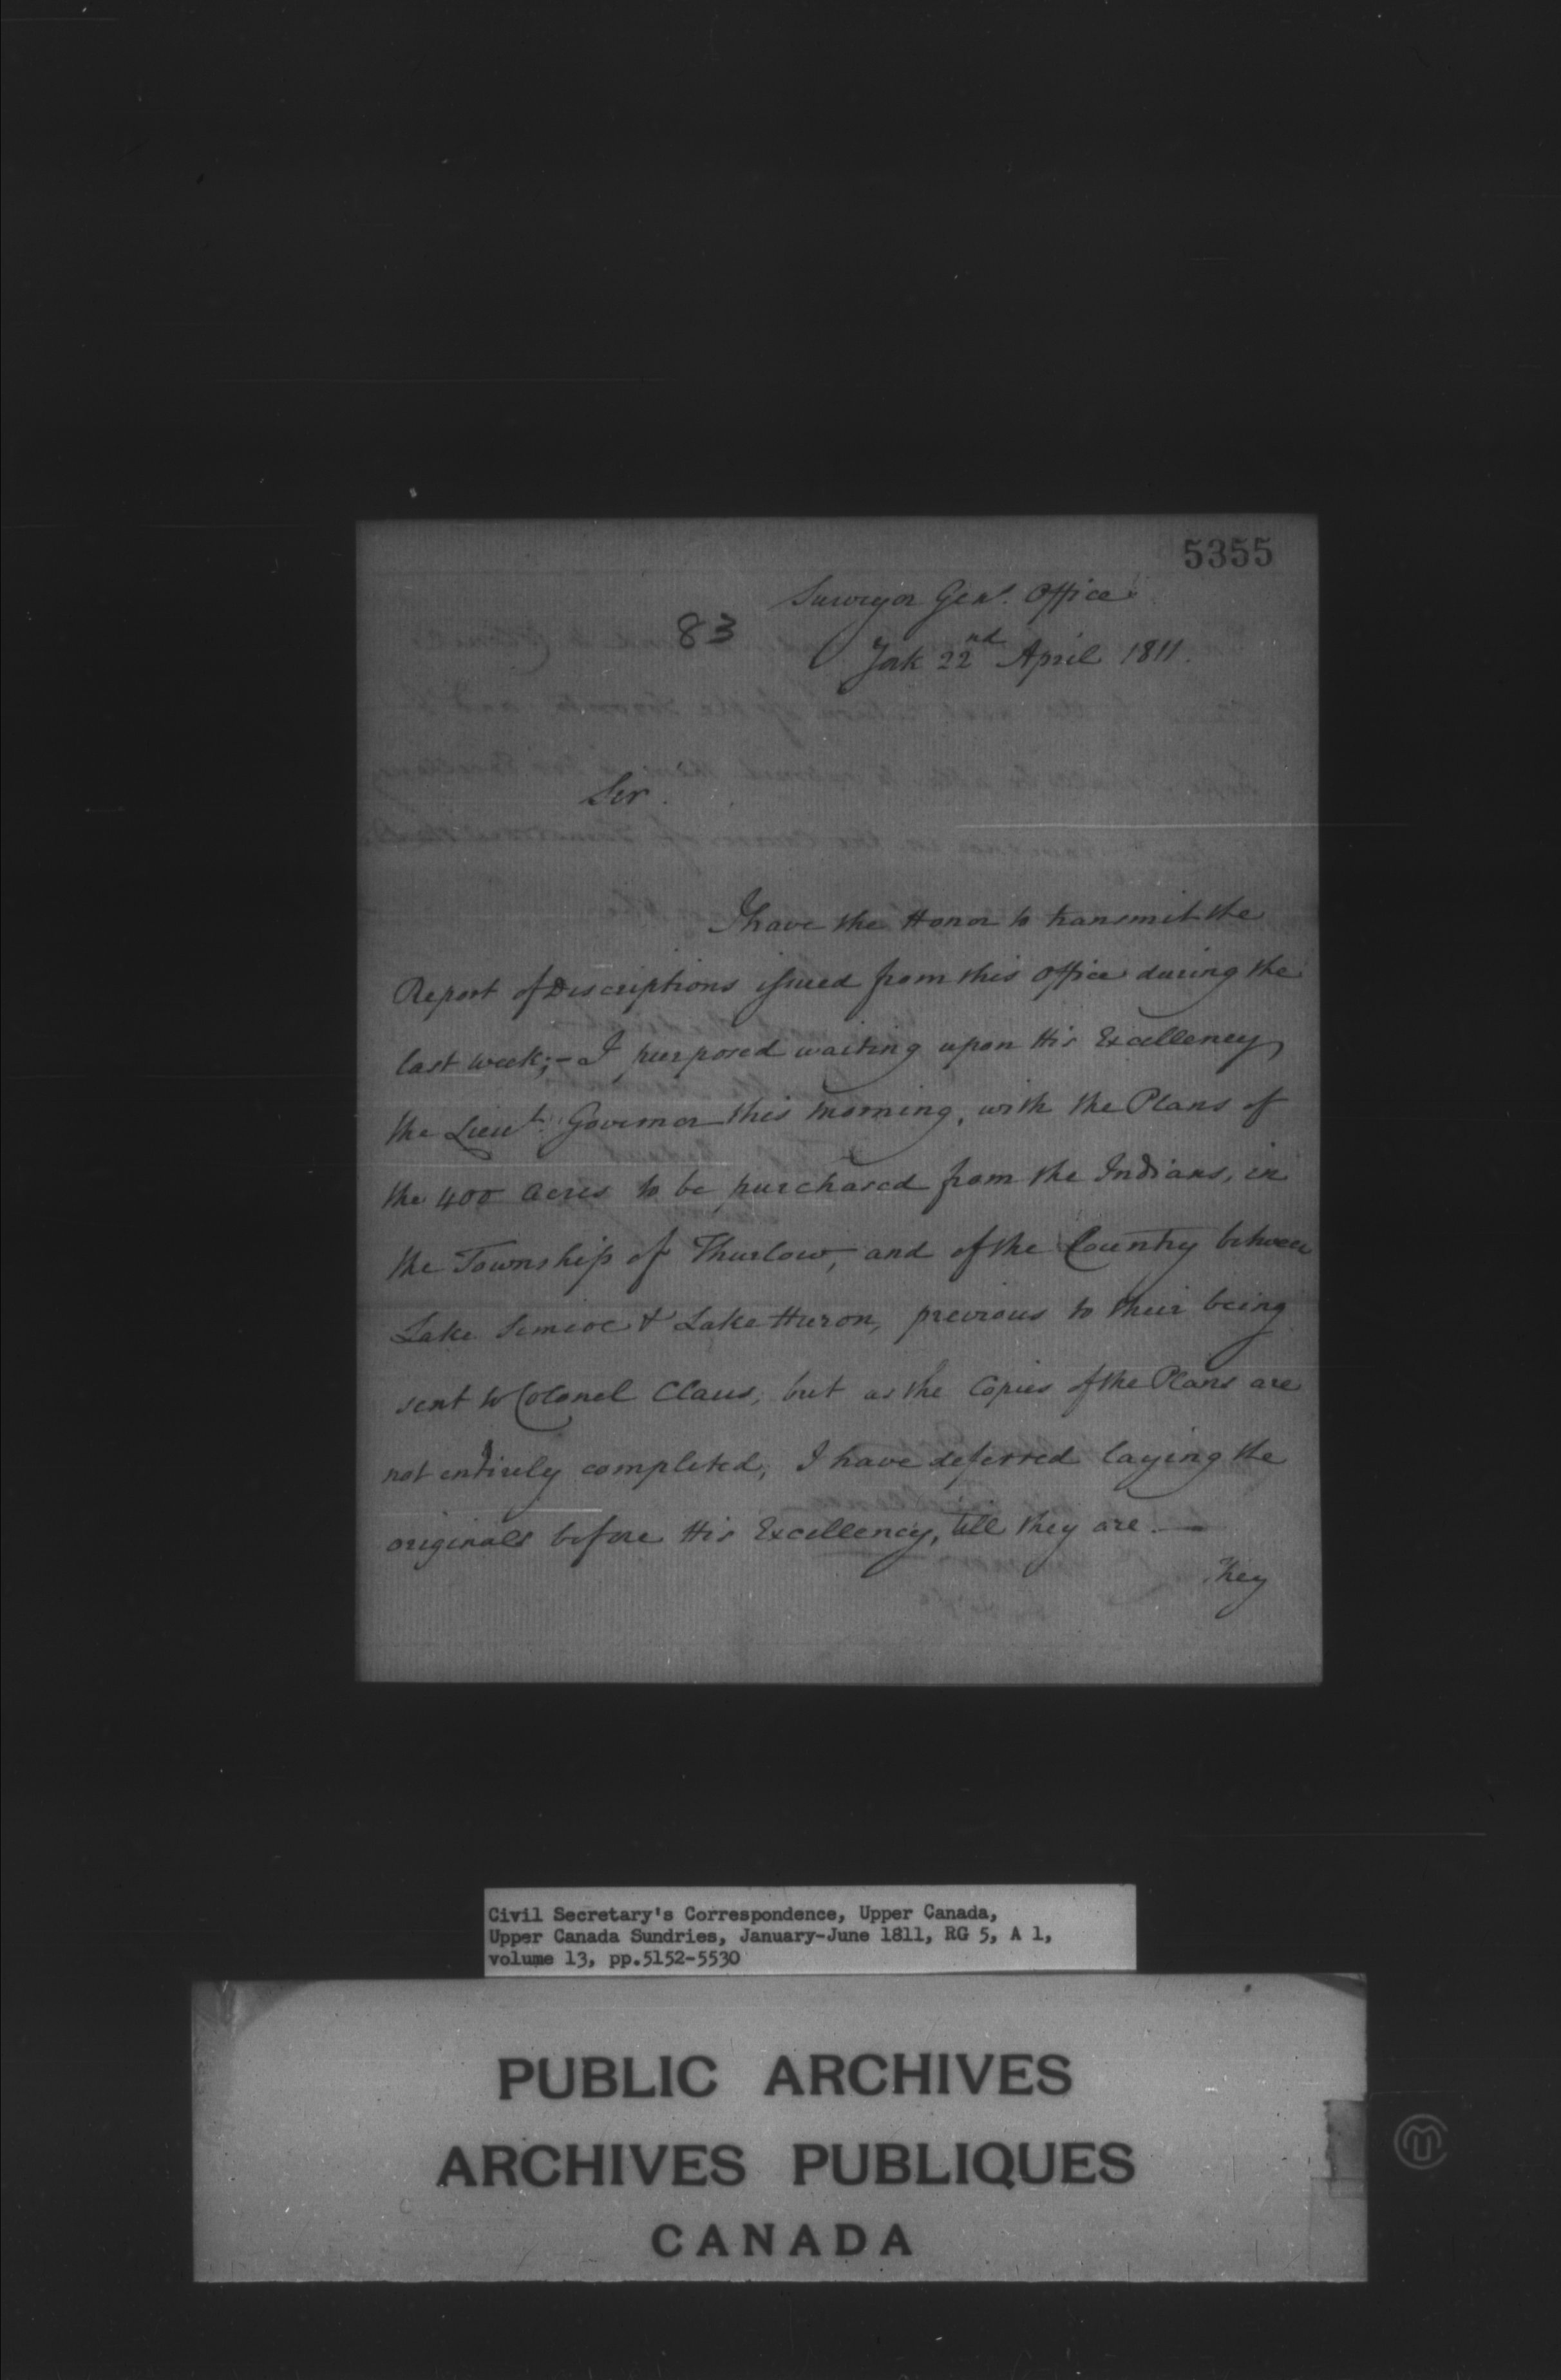 5355
Surveyor Genl. Office
83
York 22nd April 1811.
Sir.
I have the Honor to transmit the
Report of Descriptions issued from this Office during the
last week;- I purposed waiting upon His Excellency
the Lieut. Governor this morning, with the Plans of
the 400 acres to be purchased from the Indians, in
the Township of Thurlow, and of the Country between
Lake Simcoe & Lake Huron, previous to their being
sent to Colonel Claus, but as the Copies of the Plans are
not entirely completed, I have deferred laying the
originals before His Excellency, till they are.—
They
Civil Secretary's Correspondence, Upper Canada,
Upper Canada Sundries, January-June 1811, RG 5, A 1,
volume 13, pp.5152-5530
PUBLIC ARCHIVES
ARCHIVES PUBLIQUES
CANADA